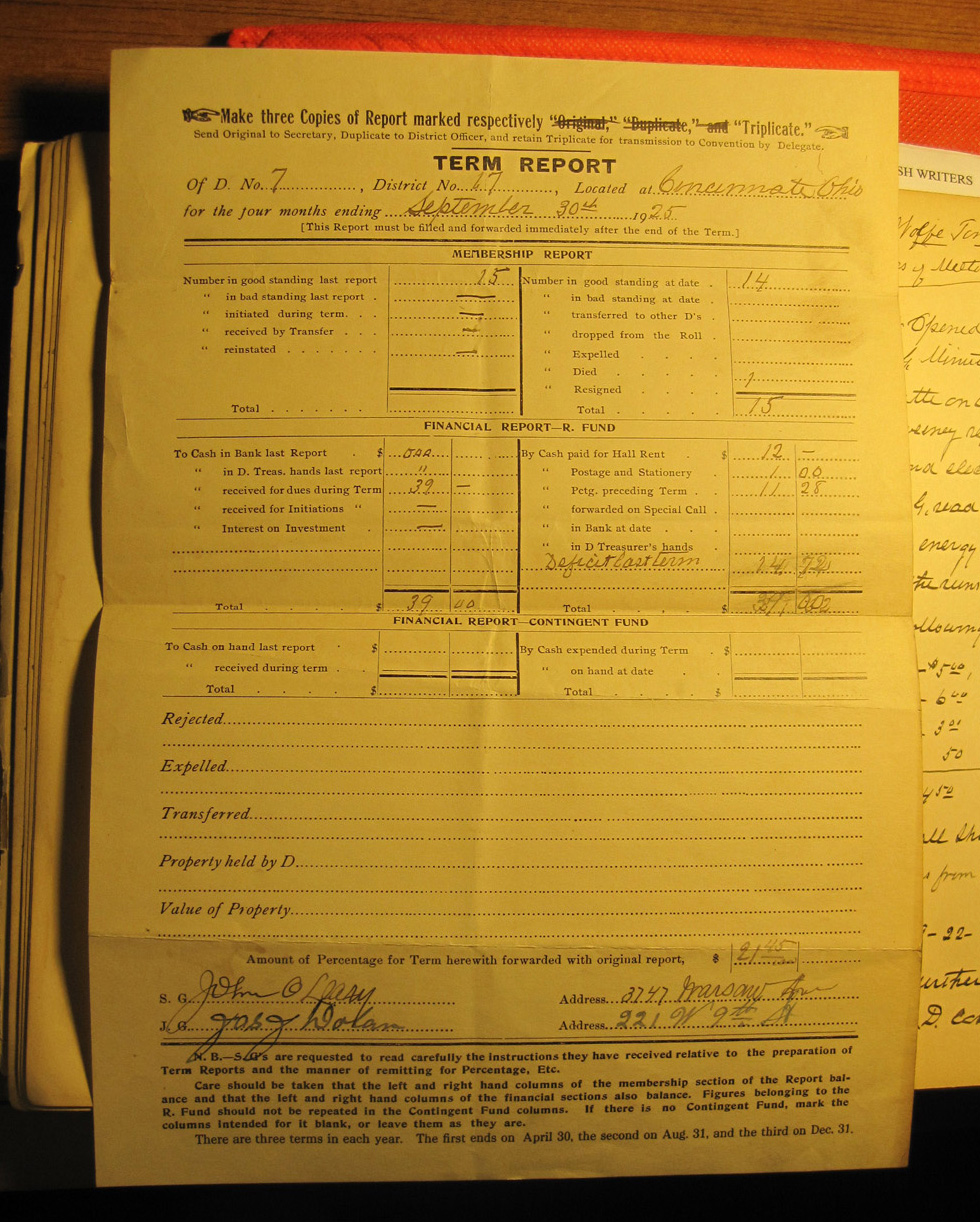 Make three Copies of Report marked respectively "Original," "Duplicate," and "Triplicate."
Send Original to Secretary, Duplicate to District Officer, and retain Triplicate for transmission to Convention by Delegate.
TERM REPORT
Of D. No. 7, District No. 17, Located at Cincinnate Ohio
for the four months ending September 30th 1925
[This Report must be filled and forwarded immediately after the end of the Term.]
MEMBERSHIP REPORT
Number in good standing last report 15
" in bad standing last report . —
" initiated during term . . —
" received by Transfer . . . —
" reinstated . . . . . . . —
Total . . . . . . .
Number in good standing at date . 14
" in bad standing at date .
" transferred to other D's .
" dropped from the Roll .
" Expelled . . . .
" Died . . . . . 1
" Resigned . . . .
Total . . . . . 15
FINANCIAL REPORT—R. FUND
To Cash in Bank last Report . $
" in D. Treas. hands last report "
" received for dues during Term 39 —
" received for Initiations " —
" Interest on Investment . —
Total . . . . $ 39 00
By Cash paid for Hall Rent . $ 12 —
" Postage and Stationery 1 00
" Pctg. preceding Term . 11 28
" forwarded on Special Call .
" in Bank at date . .
" in D Treasurer's hands
Deficit last term 14 72
Total . . . . $ 39 00
FINANCIAL REPORT—CONTINGENT FUND
To Cash on hand last report . $
" received during term . .
Total . . . . $
By Cash expended during Term . $
" on hand at date . .
Total . . . . $
Rejected
Expelled
Transferred
Property held by D.
Value of Property
Amount of Percentage for Term herewith forwarded with original report, $ 21 45
S. G. John O Leary Address 3747 Warsaw Ave
J. G. Jas J Dolan Address 221 W 9th St
N. B.—S.G's are requested to read carefully the instructions they have received relative to the preparation of
Term Reports and the manner of remitting for Percentage, Etc.
Care should be taken that the left and right hand columns of the membership section of the Report bal-
ance and that the left and right hand columns of the financial sections also balance. Figures belonging to the
R. Fund should not be repeated in the Contingent Fund columns. If there is no Contingent Fund, mark the
columns intended for it blank, or leave them as they are.
There are three terms in each year. The first ends on April 30, the second on Aug. 31, and the third on Dec. 31.
SH WRITERS
Wolfe
Opened
Minu
tte on
read
energy
the
ollowin
$5.00,
6 00
3 01
50
4 50
all
from
- 22 -
urther
D. Con